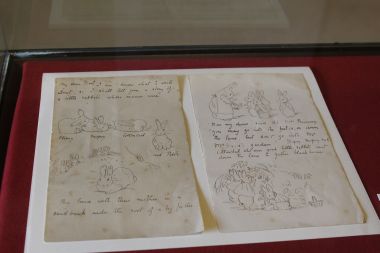 My dear Noel, I don't know what to write
so I shall tell you a story
little rabbits whose names were
Flopsy Mopsy Cottontail
and Peter
They lived with their mother in a
sand bank under the root of a big fir tree
Now my dears said old Mrs Bunny
you may go into the field or down
the lane but don't go into Mr
garden
Flopsy, Mopsy and
Cottontail who were good little rabbits went
down the lane to gather blackberries